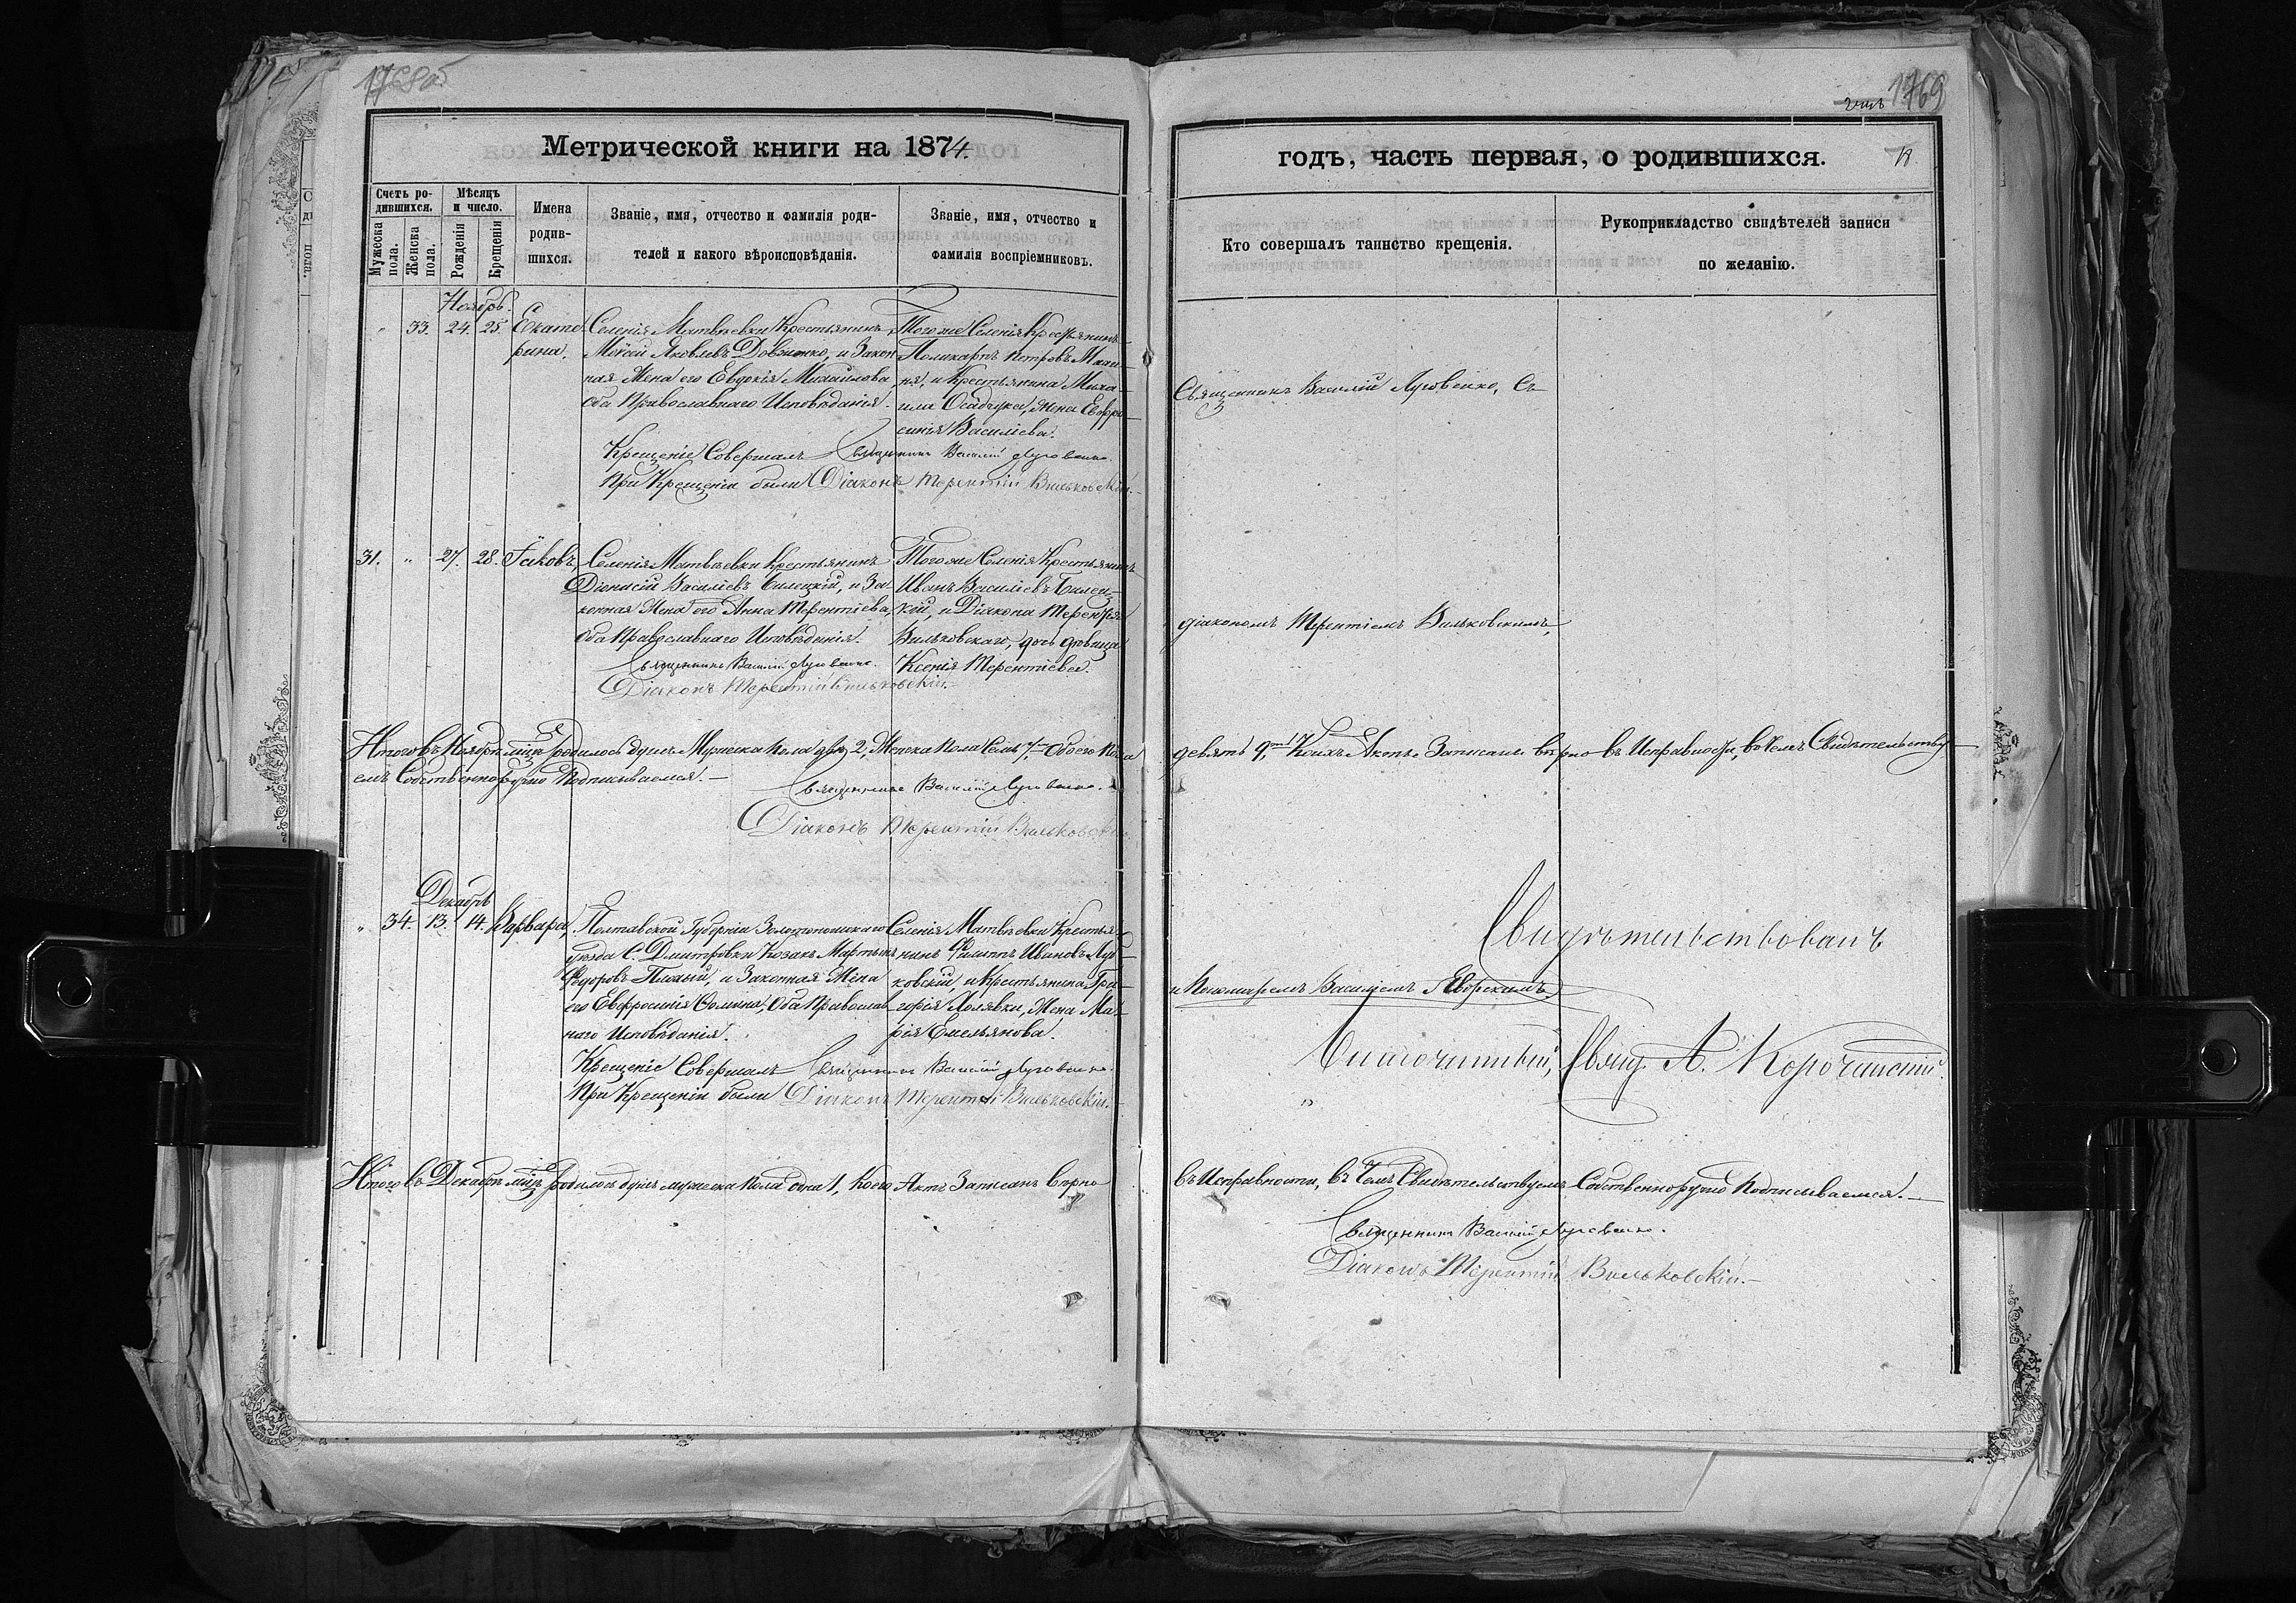 1768об
1769
Метрической книги на 1874.
годъ, часть первая, о родившихся.
Счетъ ро-
дившихся.
Мужеска
пола.
Женска
пола.
Мѣсяцъ
и число.
Рожденія
Крещенія
Имена
родив-
шихся.
Званіе, имя, отчество и фамилія роди-
телей и какого вѣроисповѣданія.
Званіе, имя, отчество и
фамилія воспріемниковъ.
Кто совершалъ таинство крещенія.
Рукоприкладство свидѣтелей записи
по желанію.
Ноябрь.
" 33. 24. 25. Екате
рина.
Селенія Матвѣевки Крестьянинъ
Мойсей Яковлевъ Довженко, и Закон
ная Жена его Евдокія Михайлова
Оба Православнаго Исповѣданія.
Того же Селенія Крестьянинъ
Поликарпъ Петровъ
и Крестьянина Миха-
ила Осадчука, Жена Евфро-
синія Василіева.
Крещеніе Совершалъ Священникъ Василій Луговенко.
При Крещеніи были Діаконъ Терентій Вильковскій.
Священникъ Василій Луговенко, съ
31. " 27. 28. Іаковъ,
Селенія Матвѣевки Крестьянинъ
Діонисій Василіевъ Билецкій, и За
конная Жена его Анна Терентіева,
Оба Православнаго Исповѣданія.
Того же Селенія Крестьянинъ
Иванъ Василіевъ Билец-
кій, и Діакона Терентія
Вильковскаго, дочь дѣвица
Ксенія Терентіева.
Священникъ Василій Луговенко.
Діаконъ Терентій Вильковскій.
діакономъ Терентіемъ Вильковскимъ,
Итого въ Ноябрѣ мцѣ родилось душъ Мужеска пола два 2, Женска пола Семь 7, Обоего пола
девять 9, Коихъ Акты Записаны вѣрно въ Исправности, въ Чемъ Свидѣтельству
емъ Собственноручно Подписываемся.
Священникъ Василій Луговенко.
Діаконъ Терентій Вильковскій.
Декабрь
" 34. 13. 14. Варвара,
Полтавской Губерніи Золотоношскаго
уѣзда С. Дмитровки Козакъ Мартынъ
Федоровъ и Законная Жена
его Евфросинія Фомина, Оба Православ
наго Исповѣданія.
Селенія Матвѣевки Крестья-
нинъ Филиппъ Ивановъ
ковскій, и Крестьянина Гри-
горія Холявки, Жена Ма-
рія Емельянова.
Крещеніе Совершалъ Священникъ Василій Луговенко.
При Крещеніи были Діаконъ Терентій Вильковскій.
Свидѣтельствовалъ
и Пономаремъ Василіемъ Яворскимъ.
Благочинный, Свящ. А. Корочанскій.
Итого въ Декабрѣ мцѣ родилось душъ мужеска пола одна 1, Коего Актъ Записанъ вѣрно
въ Исправности, въ Чемъ Свидѣтельствуемъ Собственноручно Подписываемся.
Священникъ Василій Луговенко.
Діаконъ Терентій Вильковскій.